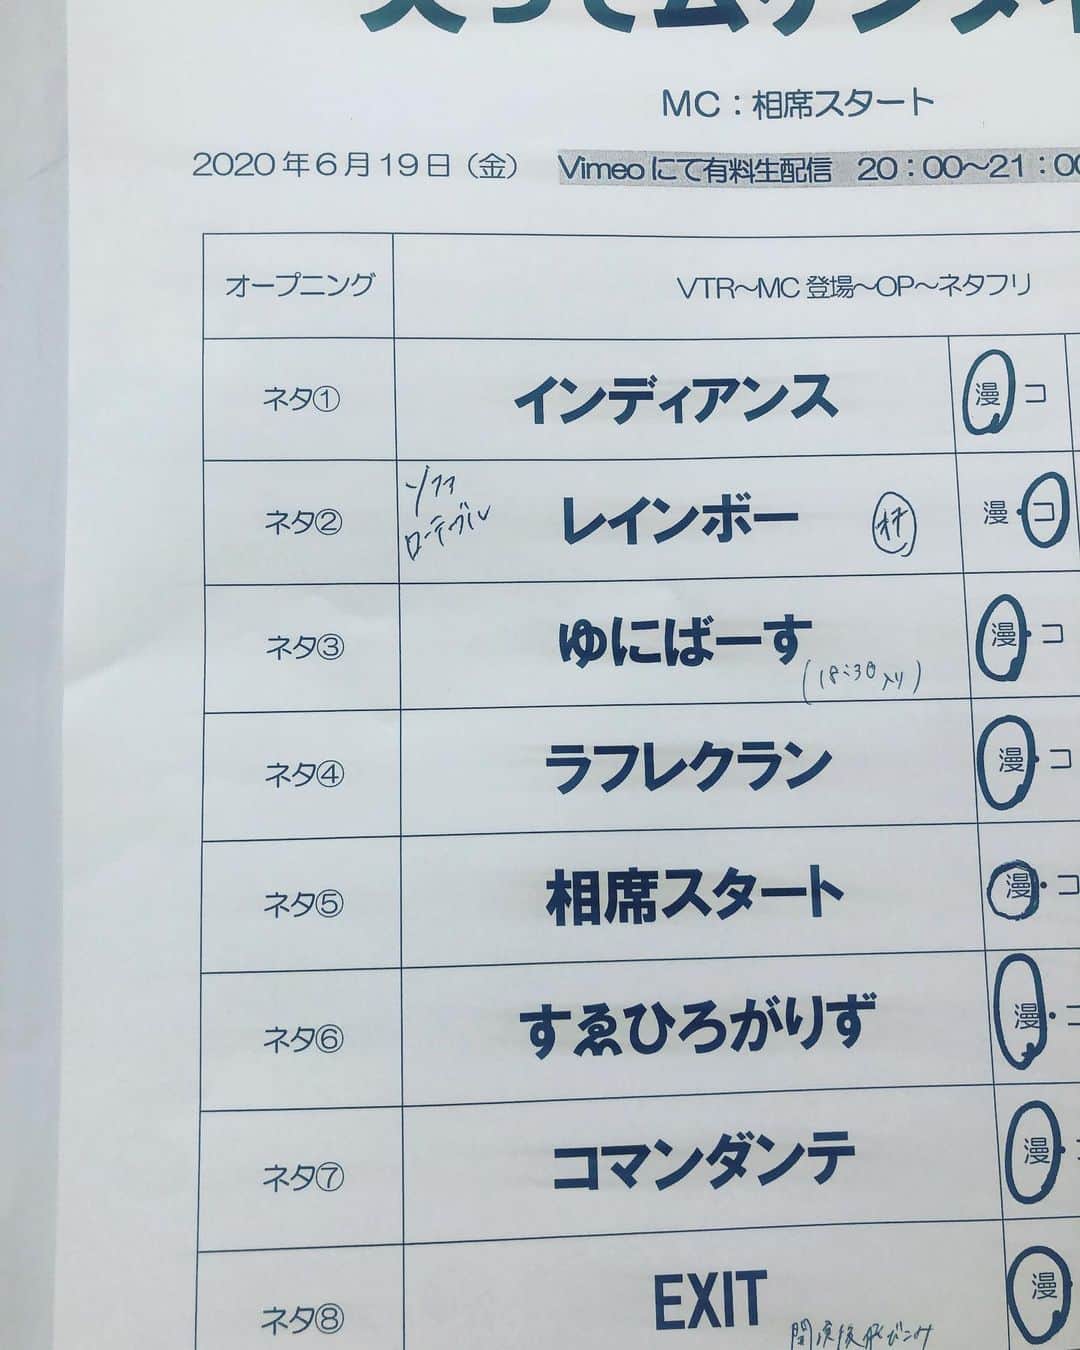 笑ってムゲンダイ
MC：相席スタート
2020年6月19日（金） Vimeoにて有料生配信 20：00〜21：00
オープニング VTR〜MC登場〜OP〜ネタフリ
ネタ① インディアンス 漫・コ
ネタ② ソファ ローテーブル レインボー 漫・コ
ネタ③ ゆにばーす (18:30入り) 漫・コ
ネタ④ ラフレクラン 漫・コ
ネタ⑤ 相席スタート 漫・コ
ネタ⑥ すゑひろがりず 漫・コ
ネタ⑦ コマンダンテ 漫・コ
ネタ⑧ EXIT 漫